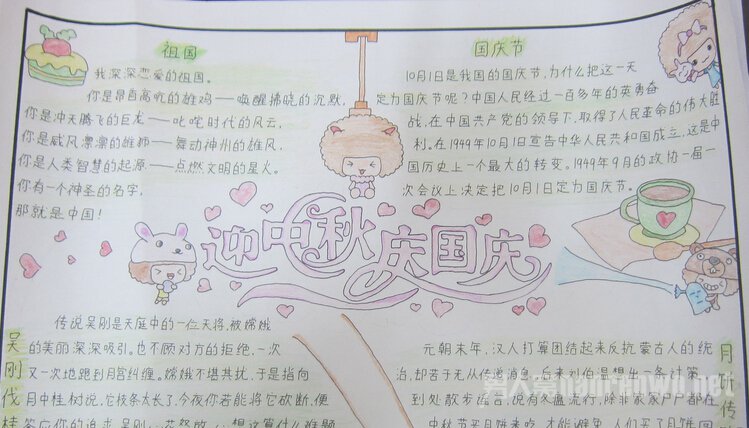 祖国
我深深恋爱的祖国。
你是昂首高吭的雄鸡——唤醒拂晓的沉默,
你是冲天腾飞的巨龙——叱咤时代的风云,
你是威风凛凛的雄狮——舞动神州的雄风,
你是人类智慧的起源——点燃文明的星火。
你有一个神圣的名字,
那就是中国!
国庆节
10月1日是我国的国庆节,为什么把这一天
定为国庆节呢?中国人民经过一百多年的英勇奋
战,在中国共产党的领导下,取得了人民革命的伟大胜
利。在1949年10月1日宣告中华人民共和国成立,这是中
国历史上一个最大的转变。1949年9月的政协一届一
次会议上决定把10月1日定为国庆节。
迎中秋庆国庆
吴刚伐桂
传说吴刚是天庭中的一位天将,被嫦娥
的美丽深深吸引。也不顾对方的拒绝,一次
又一次地跑到月宫纠缠。嫦娥不堪其扰,于是指向
月中桂树说,它枝条太长了,今夜你若能将它砍断,便
答应你的追求。吴刚一
元朝末年,汉人打算团结起来反抗蒙古人的统
治,却苦于无从传递消息。后来刘伯温想出一条计策,
到处散步谣言,说有冬瘟流行,除非家家户户都在
中秋节买月饼来吃,才能避免。人们买了月饼回
月饼传
男人窝nanrenwo.net